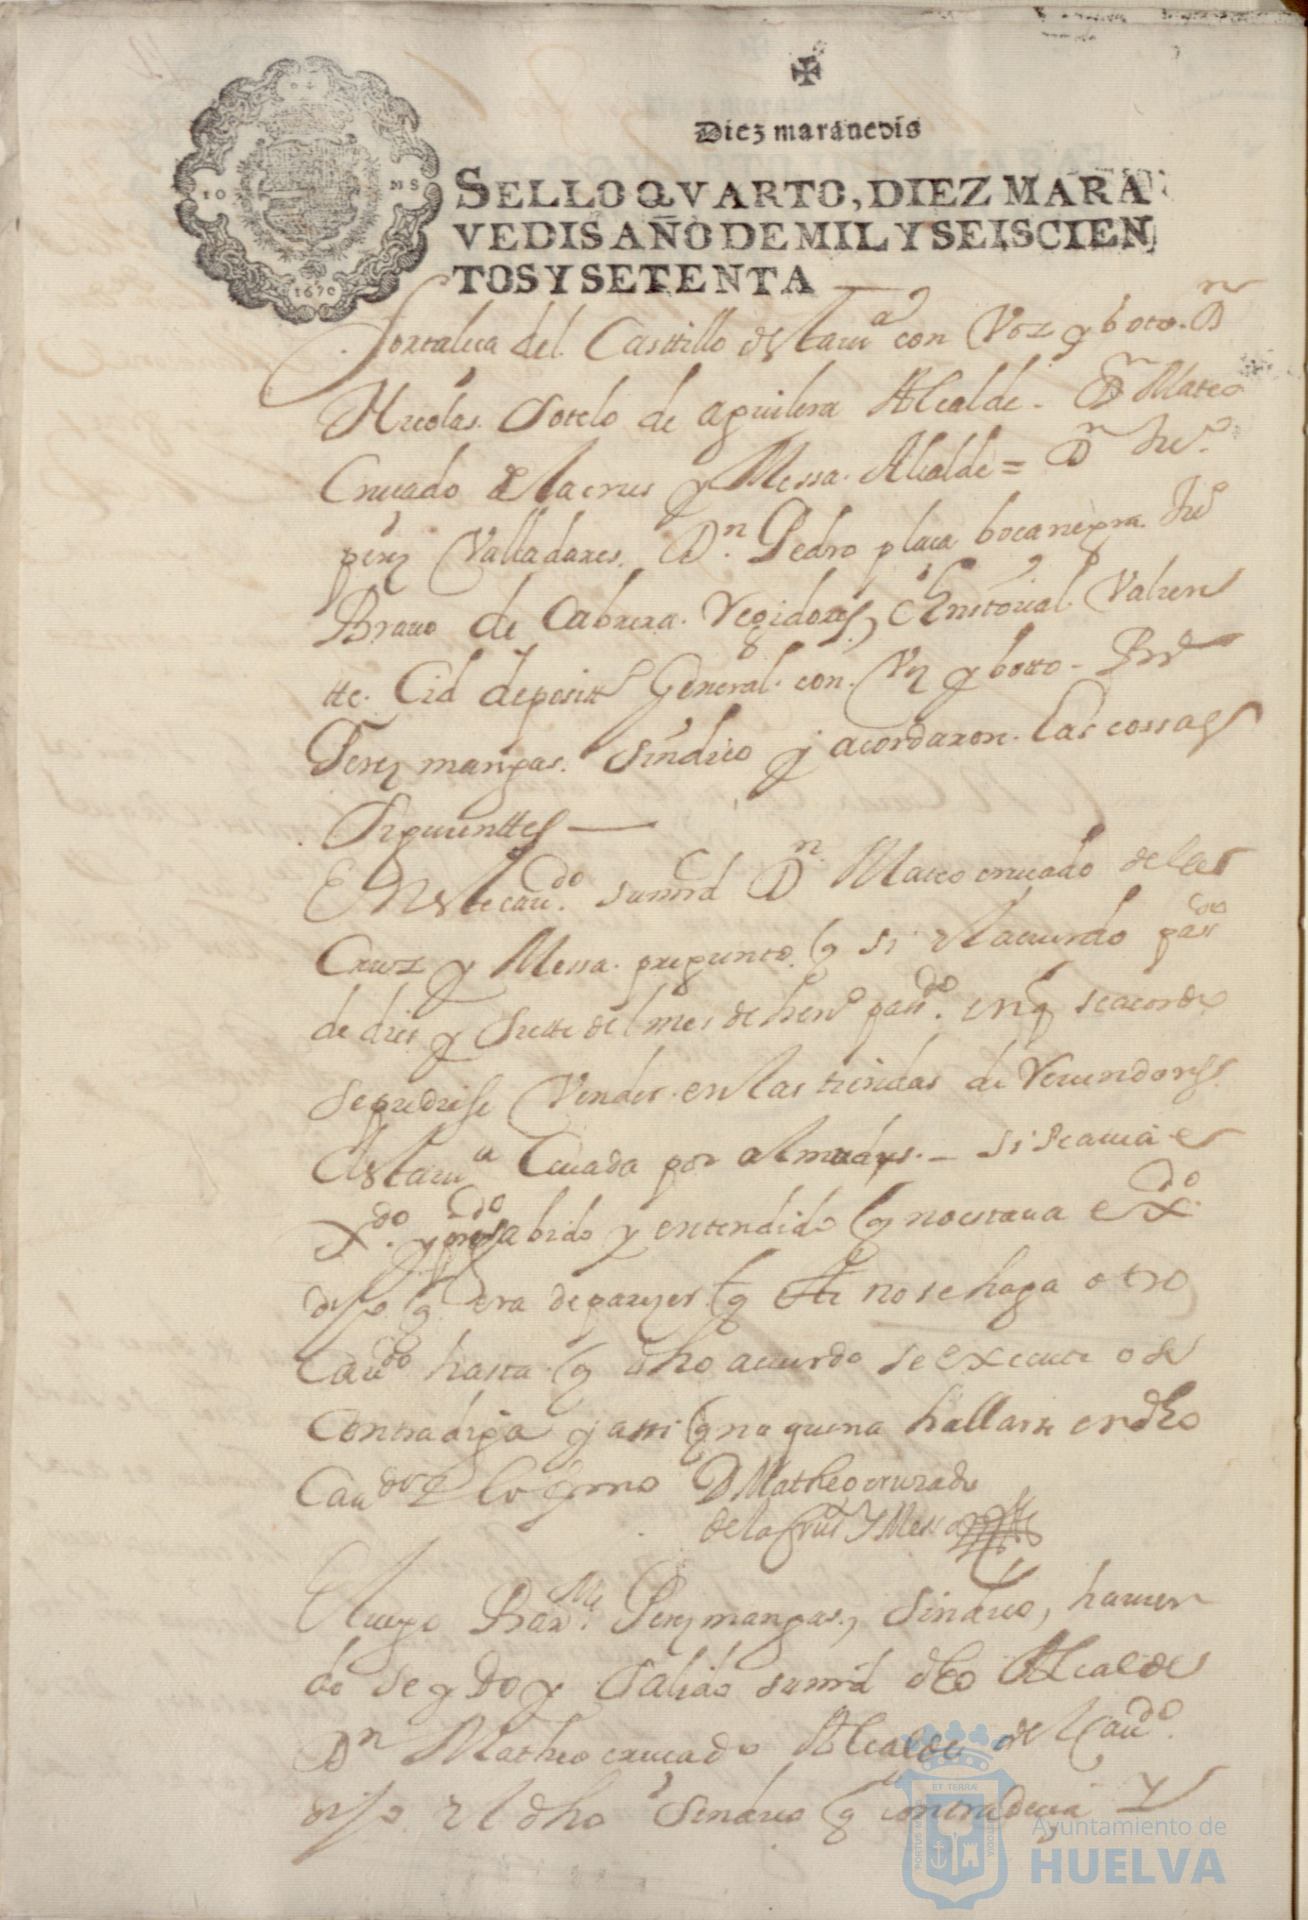 Diez marauedis
SELLO QVARTO, DIEZ MARA
VEDIS AÑO DE MIL Y SEISCIEN
TOS Y SETENTA
10 MS
1670
fortaleca del Casttillo destauaª con Voz y boto. Dn
Nicolas Sotelo de aguilera Alcalde. Dn Mateo
Crucado de la crus y Messa. Alcalde = Dn Juº
perez Valladares. Dn Pedro placa bocanegra Juº
Brauo de Cabrera. Regidores, Cristoual Valien
tte Cid depositº General con Vz y botto
Perez mangas. Sindico y acordaron las cossas
Siguienttes
En este caudo. sumrd Dn Mateo crucado de la
Cruz y Messa. pregunto q si el acuerdo passdo
de dies y Siette del mes de henrº passdo. en q se acordo
se pudiese Vender en las tiendas de Veuendores
desta uª Ceuada por almudes. si se auia e
xdo. y auiendo sabido y entendido q no estaua exdo.
dijo q era de parezer q no se haga otro
Caudo hasta q dho acuerdo se execute o se
Contradiga y assi q no queria hallarse en dho
Caudo e lo firmo D Matheo cruzado
de la Crus Y Messa
E luego Barme Perez mangas, Sindico, hauien
do se ydo y Salido sumrd dho Alcalde
Dn Matheo crucado Alcalde del Caudo.
dijo el dho Sindico q contradecia Y
ET TERRÆ
PORTUS MARIS
CUSTODIA
Ayuntamiento de
HUELVA